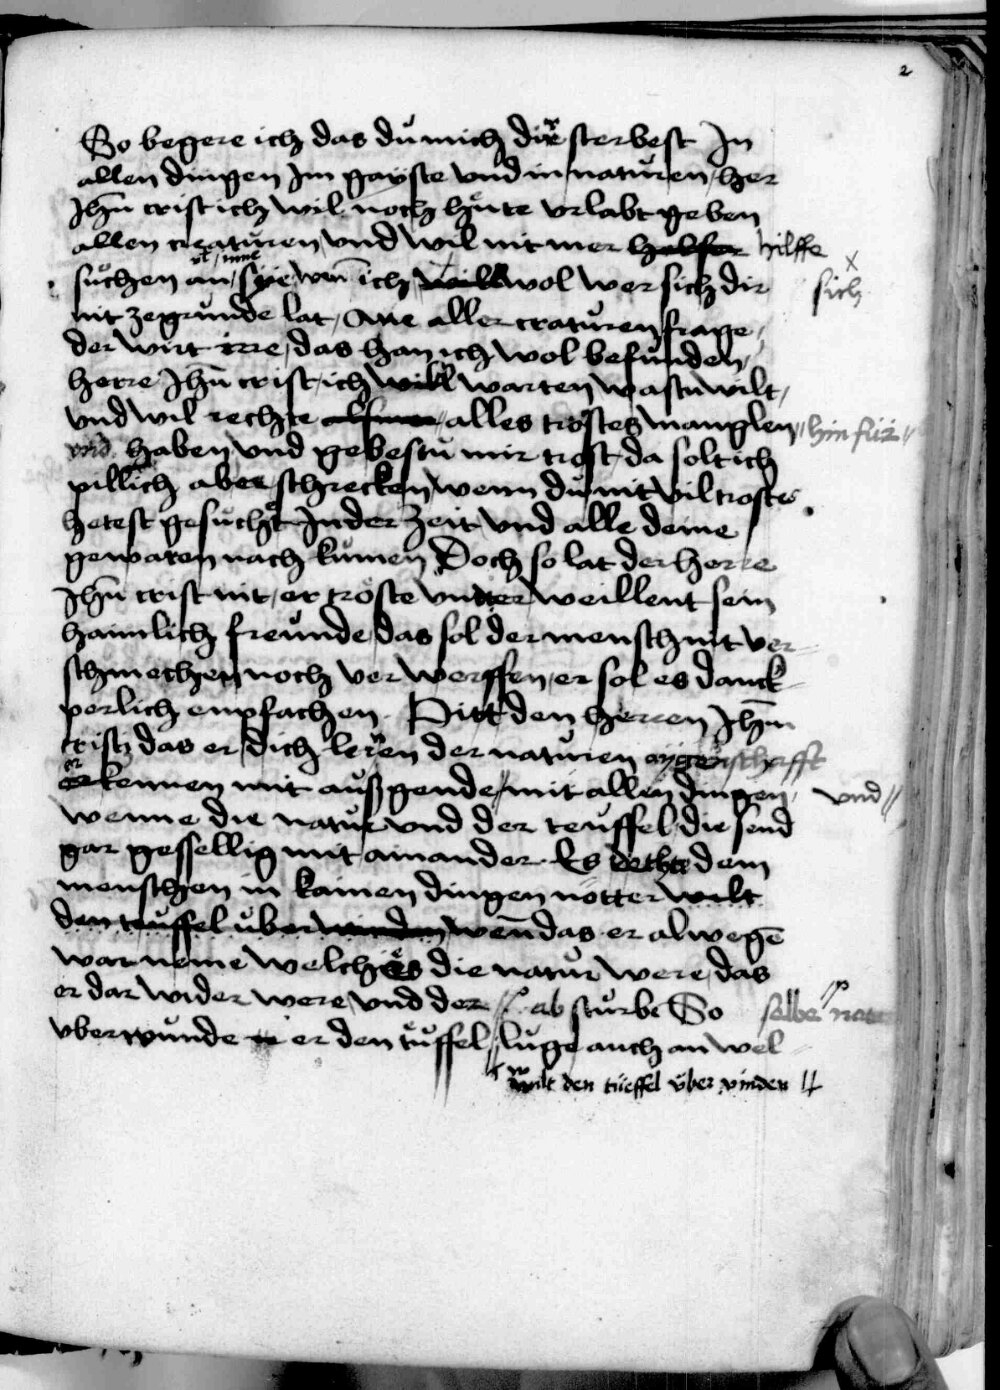 2
So begere ich das du mich dir sterbest In
allen dingen Im gayste vnd in naturen her
Jhu crist ich wil noch hute vrlabt geben
allen creaturen vnd wil nit mer helfer hilffe
suchen an sye wan ich will wol wer sich dir sich
nit ze grunde lat / One aller craturen frage
der wirt irre / das han ich wol befunden
herre Jhu crist ich will warten was tu wilt /
vnd wil rechte alles trostes manglen hin für
vnd haben vnd gebestu mir trost da solt ich
pillich aber schrecken wenn du nit vil trostes
hetest gesucht In der zeit vnd alle deine
gewaren nach kumen Doch so lat der herre
Jhu crist nit / er troste vnder weillent sein
haimlich freunde das sol der mensch nit ver
schmechen noch ver werffen / er sol es danck
perlich enpfachen . Pitt den herren Jhm
crist das er dich leren der naturen aygenschafft
er kennen mit auß gende / mit allen dingen vnd
wenne die natur vnd der teuffel die send
gar gesellig mit ainander . Es dem
menschen in kainen dingen nötter wilt
den teuffel uber winden wen das er alwege
war neme welches die natur were / das
er dar wider were vnd der ab sturbe So selbe natur
vberwunde er den tuffel / luge auch an wel
wilt den tüeffel über vinden